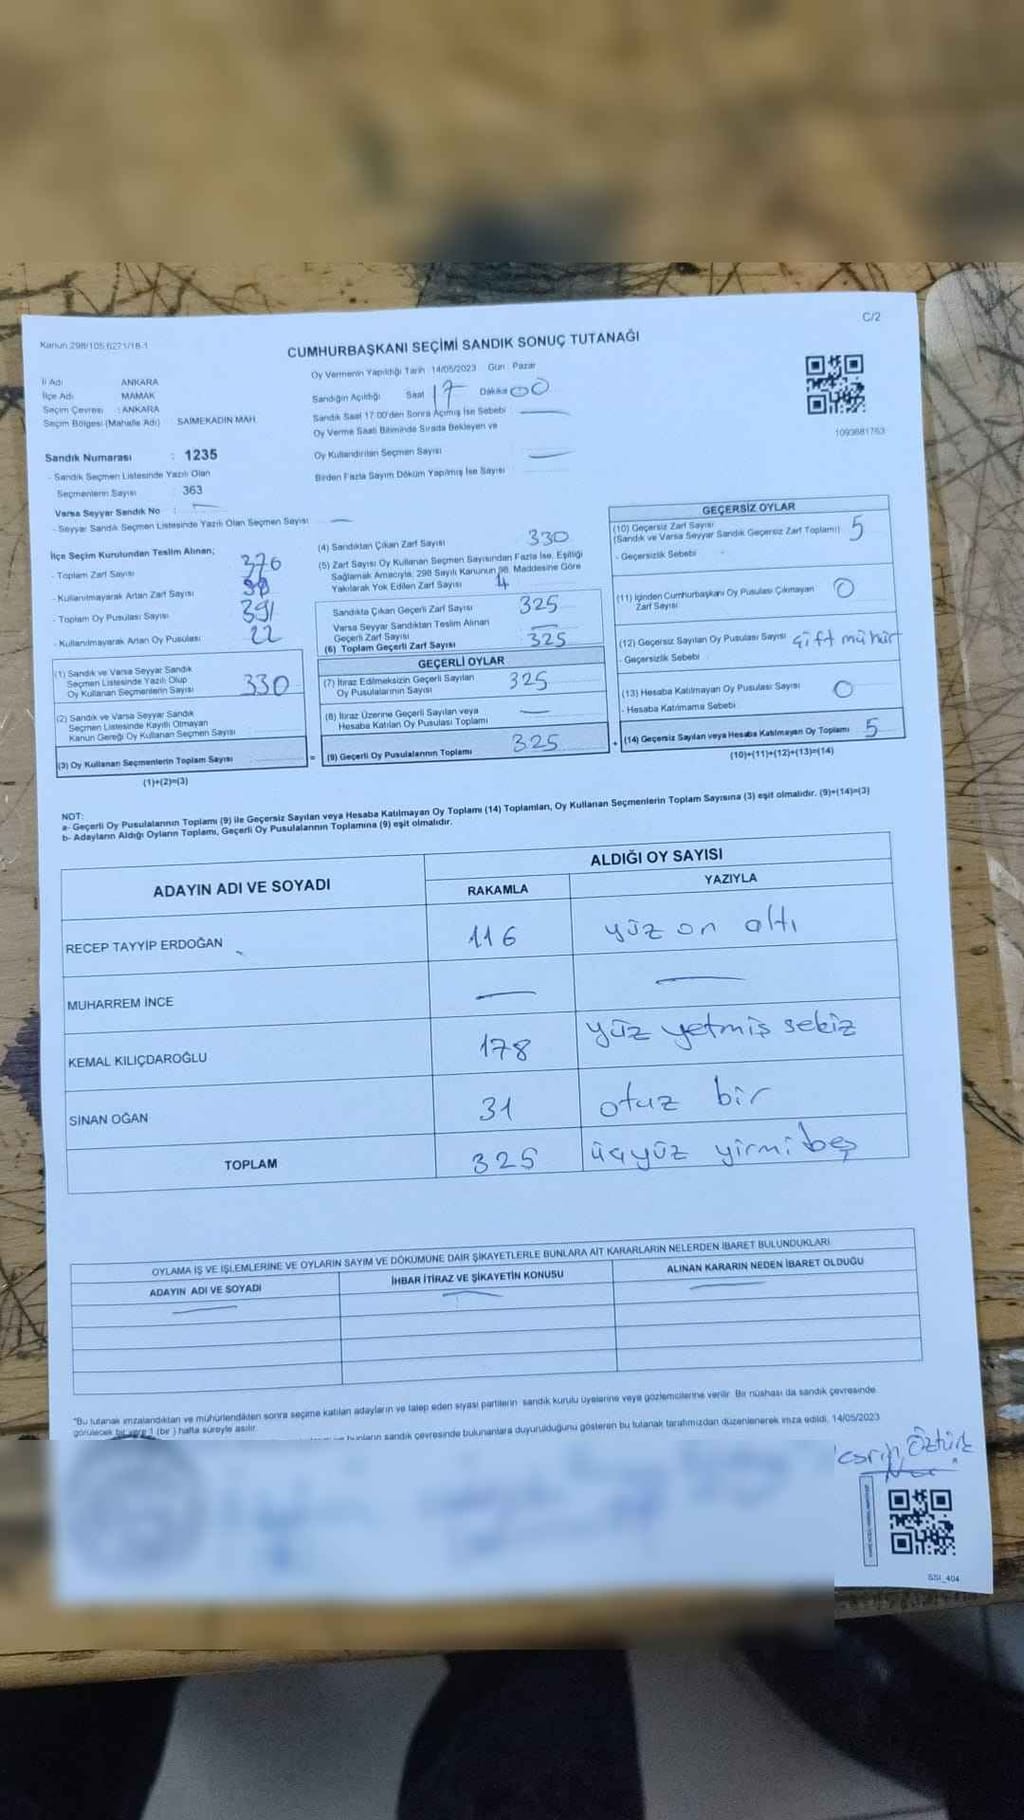 C/2
Kanun 298/105,6271/18-1
CUMHURBAŞKANI SEÇİMİ SANDIK SONUÇ TUTANAĞI
İl Adı ANKARA
İlçe Adı MAMAK
Seçim Çevresi : ANKARA
Seçim Bölgesi (Mahalle Adı) SAİMEKADIN MAH
Oy Vermenin Yapıldığı Tarih 14/05/2023 Gün : Pazar
Sandığın Açıldığı Saat 17 Dakika 00
Sandık Saat 17:00'den Sonra Açılmış İse Sebebi —
Oy Verme Saati Bitiminde Sırada Bekleyen ve
Oy Kullandırılan Seçmen Sayısı —
Birden Fazla Sayım Döküm Yapılmış İse Sayısı
1093681763
Sandık Numarası : 1235
- Sandık Seçmen Listesinde Yazılı Olan
Seçmenlerin Sayısı : 363
Varsa Seyyar Sandık No : —
- Seyyar Sandık Seçmen Listesinde Yazılı Olan Seçmen Sayısı —
İlçe Seçim Kurulundan Teslim Alınan;
- Toplam Zarf Sayısı 376
- Kullanılmayarak Artan Zarf Sayısı
- Toplam Oy Pusulası Sayısı 391
- Kullanılmayarak Artan Oy Pusulası 22
(1) Sandık ve Varsa Seyyar Sandık
Seçmen Listesinde Yazılı Olup
Oy Kullanan Seçmenlerin Sayısı 330
(2) Sandık ve Varsa Seyyar Sandık
Seçmen Listesinde Kayıtlı Olmayan
Kanun Gereği Oy Kullanan Seçmen Sayısı
(3) Oy Kullanan Seçmenlerin Toplam Sayısı
(1)+(2)=(3)
(4) Sandıktan Çıkan Zarf Sayısı 330
(5) Zarf Sayısı Oy Kullanan Seçmen Sayısından Fazla İse, Eşitliği
Sağlamak Amacıyla, 298 Sayılı Kanunun 98. Maddesine Göre
Yakılarak Yok Edilen Zarf Sayısı
Sandıkta Çıkan Geçerli Zarf Sayısı 325
Varsa Seyyar Sandıktan Teslim Alınan
Geçerli Zarf Sayısı —
(6) Toplam Geçerli Zarf Sayısı 325
GEÇERLİ OYLAR
(7) İtiraz Edilmeksizin Geçerli Sayılan
Oy Pusulalarının Sayısı 325
(8) İtiraz Üzerine Geçerli Sayılan veya
Hesaba Katılan Oy Pusulası Toplamı —
= (9) Geçerli Oy Pusulalarının Toplamı 325
GEÇERSİZ OYLAR
(10) Geçersiz Zarf Sayısı
(Sandık ve Varsa Seyyar Sandık Geçersiz Zarf Toplamı) 5
- Geçersizlik Sebebi
(11) İçinden Cumhurbaşkanı Oy Pusulası Çıkmayan
Zarf Sayısı 0
(12) Geçersiz Sayılan Oy Pusulası Sayısı çift mühür
- Geçersizlik Sebebi
(13) Hesaba Katılmayan Oy Pusulası Sayısı 0
- Hesaba Katılmama Sebebi
+ (14) Geçersiz Sayılan veya Hesaba Katılmayan Oy Toplamı 5
(10)+(11)+(12)+(13)=(14)
NOT:
a- Geçerli Oy Pusulalarının Toplamı (9) ile Geçersiz Sayılan veya Hesaba Katılmayan Oy Toplamı (14) Toplamları, Oy Kullanan Seçmenlerin Toplam Sayısına (3) eşit olmalıdır. (9)+(14)=(3)
b- Adayların Aldığı Oyların Toplamı, Geçerli Oy Pusulalarının Toplamına (9) eşit olmalıdır.
ADAYIN ADI VE SOYADI ALDIĞI OY SAYISI
RAKAMLA YAZIYLA
RECEP TAYYİP ERDOĞAN 116 yüz on altı
MUHARREM İNCE — —
KEMAL KILIÇDAROĞLU 178 yüz yetmiş sekiz
SİNAN OĞAN 31 otuz bir
TOPLAM 325 üçyüz yirmi beş
OYLAMA İŞ VE İŞLEMLERİNE VE OYLARIN SAYIM VE DÖKÜMÜNE DAİR ŞİKAYETLERLE BUNLARA AİT KARARLARIN NELERDEN İBARET BULUNDUKLARI
ADAYIN ADI VE SOYADI İHBAR İTİRAZ VE ŞİKAYETİN KONUSU ALINAN KARARIN NEDEN İBARET OLDUĞU
— — —
*Bu tutanak imzalandıktan ve mühürlendikten sonra seçime katılan adayların ve talep eden siyasi partilerin sandık kurulu üyelerine veya gözlemcilerine verilir. Bir nüshası da sandık çevresinde
görülecek bir yere 1 (bir) hafta süreyle asılır.
bunların sandık çevresinde bulunanlara duyurulduğunu gösteren bu tutanak tarafımızdan düzenlenerek imza edildi. 14/05/2023
Öztürk
SSI_404